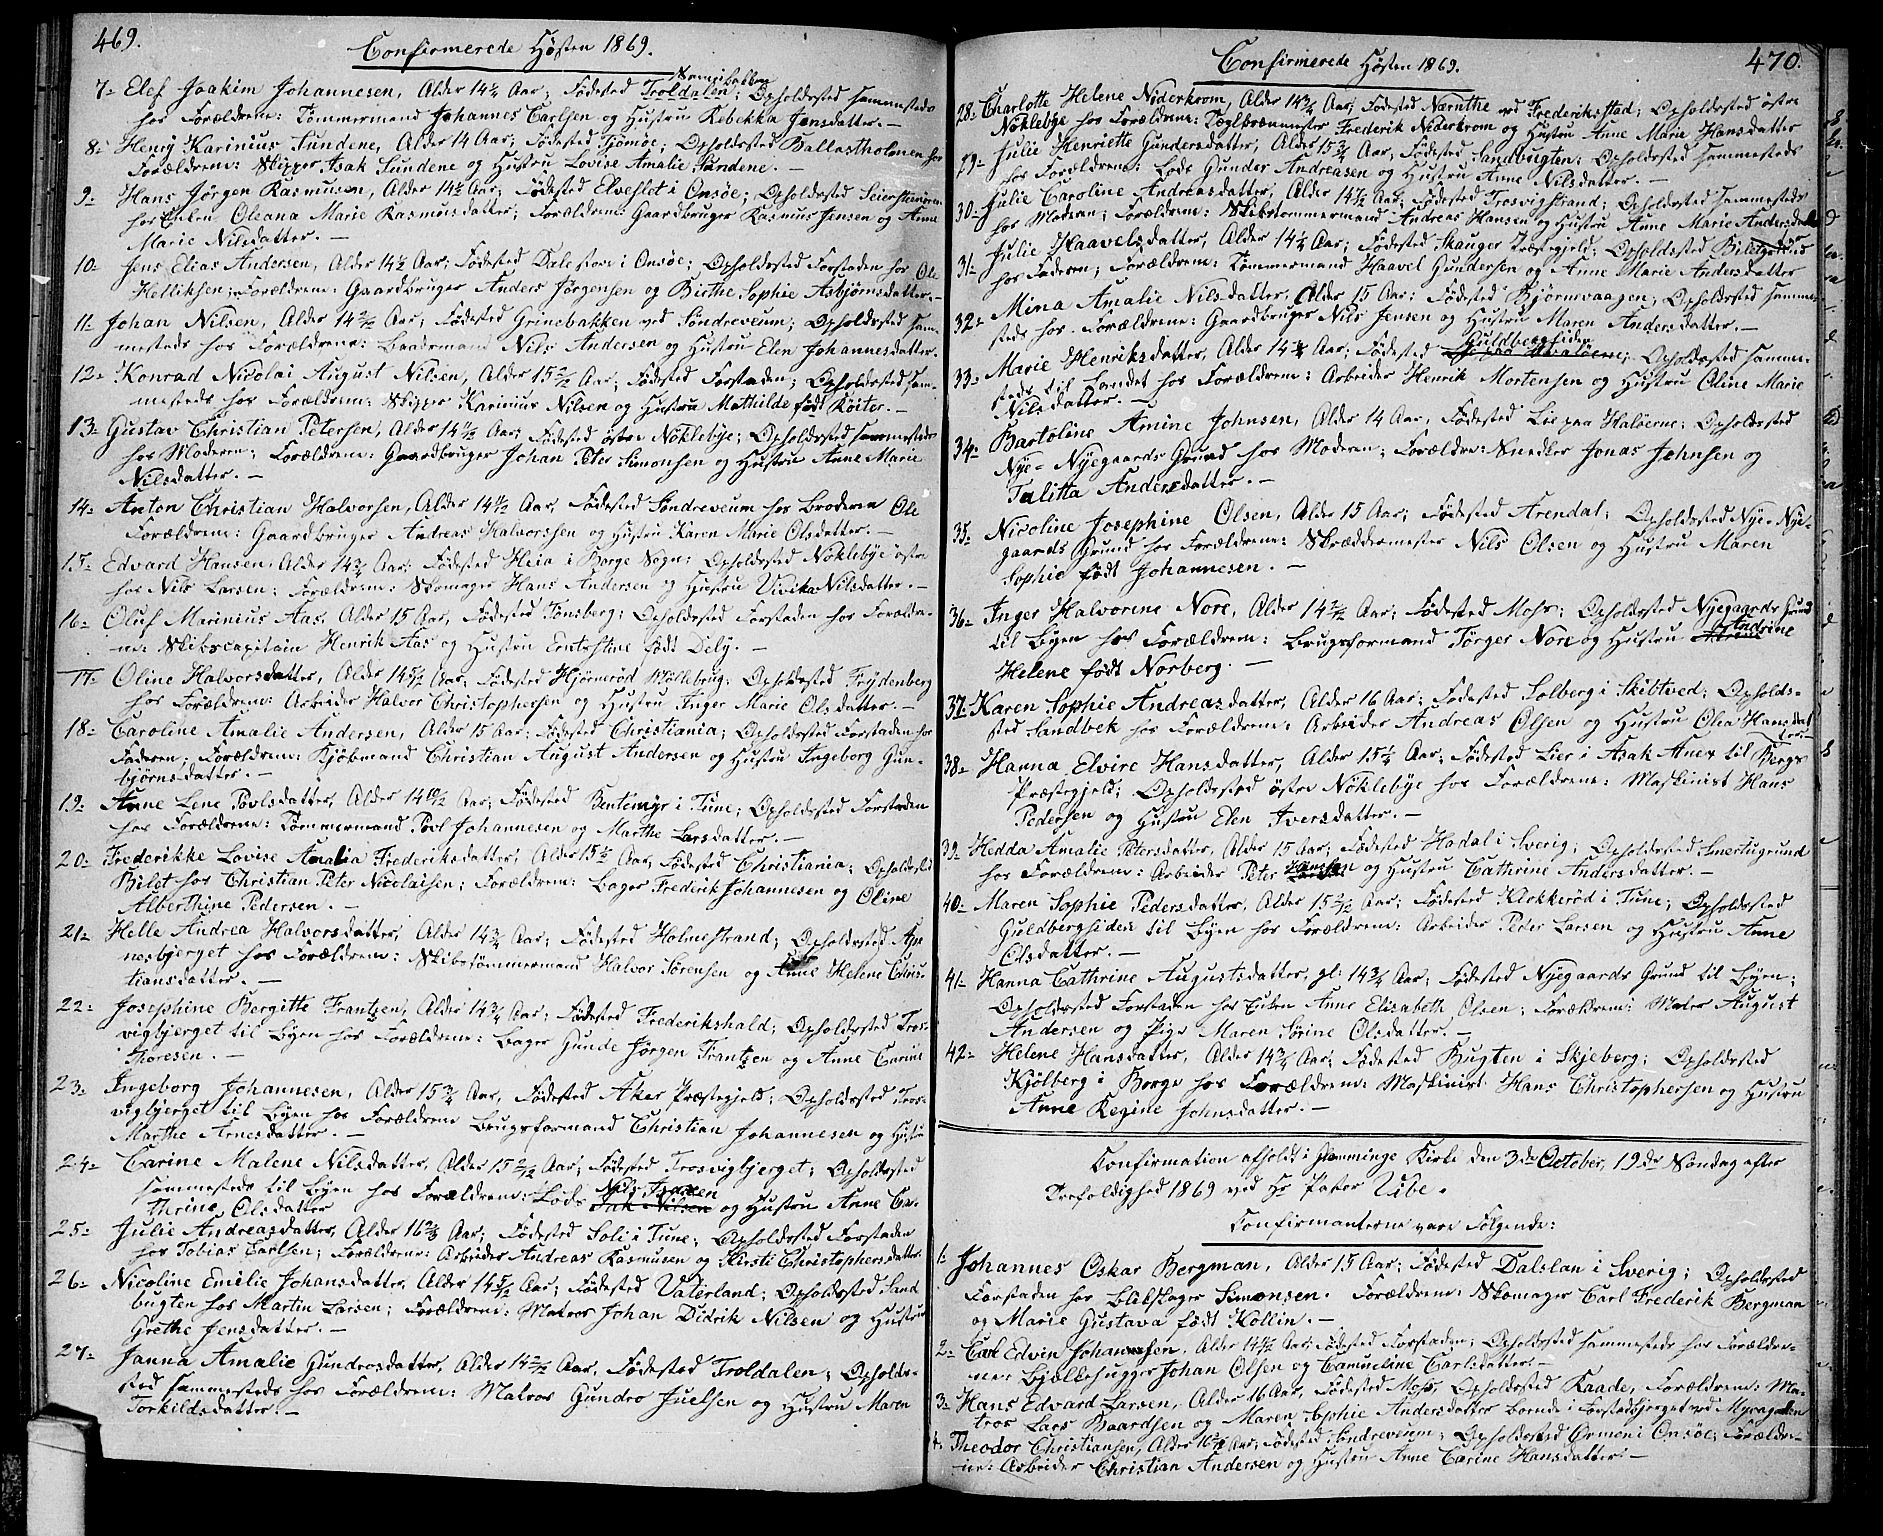 469.
Confirmerede Høsten 1869.
7- Elef Joakim Johannesen, Alder 14¼ Aar, Fødested Troldalen; Opholdssted sammesteds
hos Forældrene: Tømmermand Johannes Carlsen og Hustru Rebekka Jensdatter. -
8- Henry Karinius Sundene, Alder 14 Aar; Fødested Tjømøe; Opholdssted Ballastholmen hos
Forældrene: Skipper Isak Sundene og Hustru Lovise Amalie Sundene. -
9- Hans Jörgen Rasmusen, Alder 14½ Aar; Fødested Elveslet i Onsøe; Opholdssted
hos Enken Oleana Marie Rasmusdatter; Forældrene: Gaardbruger Rasmus Jensen og Anne
Marie Nilsdatter. -
10- Jens Elias Andersen, Alder 14½ Aar; Fødested Dalestøen i Onsøe; Opholdssted Forstaden hos Ole
Helliksen; Forældrene: Gaardbruger Anders Jörgensen og Birthe Sophie Asbjørnsdatter. -
11- Johan Nilsen, Alder 14 Aar; Fødested Grinebakken ved Söndreveum; Opholdssted sam-
mesteds hos Forældrene: Baadsmand Nils Andersen og Hustru Elen Johannesdatter.
12- Konrad Nicolai August Nilsen, Alder 15 Aar; Fødested Forstaden; Opholdssted sam-
mesteds hos Forældrene: Skipper Karinius Nilsen og Hustru Mathilde født Röiter. -
13- Gustav Christian Petersen, Alder 14 Aar; Fødested östre Nöklebye; Opholdssted sammesteds
hos Moderen; Forældrene: Gaardbruger Johan Peter Simonsen og Hustru Anne Marie
Nilsdatter. -
14- Anton Christian Halvorsen, Alder 14 Aar, Fødested Söndreveum hos Broderen Ole
Forældrene: Gaardbruger Andreas Halvorssen og Hustru Karen Marie Olsdatter. -
15- Edvard Hansen, Alder 14¾ Aar; Fødested Heia i Borge Sogn; Opholdssted Nöklebye östre
hos Nils Larsen; Forældrene: Skomager Hans Andersen og Hustru Vivika Nilsdatter. -
16- Oluf Marinius Aas, Alder 15 Aar, Fødested Tönsberg; Opholdssted Forstaden hos Forældre-
ne: Skibscapitain Henrik Aas og Hustru født Dely. -
17- Oline Halvorsdatter, Alder 14 Aar, Fødested Hjørnerød Möllebrug; Opholdssted Frydenberg
hos Forældrene: Arbeider Halvor Christophersen og Hustru Inger Marie Olsdatter. -
18- Caroline Amalie Andersen, Alder 15 Aar; Fødested Christiania; Opholdssted Forstaden hos
Faderen; Forældrene: Kjøbmand Christian August Andersen og Hustru Ingeborg Gun-
björnsdatter. -
19- Anne Lene Povlsdatter, Alder 14 Aar; Fødested Bentemyr i Tune; Opholdssted Forstaden
hos Forældrene: Tømmermand Povl Johannesen og Marthe Larsdatter. -
20- Frederikke Lovise Amalia Frederiksdatter, Alder 15½ Aar, Fødested Christiania; Opholdssted
Bilet hos Christian Peter Nicolaisen; Forældrene: Bager Frederik Johannesen og Oline
Alberthine Pedersen. -
21- Helle Andrea Halvorsdatter, Alder 14¾ Aar; Fødested Holmestrand; Opholdssted Ag-
nesbjerget hos Forældrene: Skibstømmermand Halvor Sørensen og Anne Helene Chris-
tiansdatter. -
22- Josephine Bergitte Frantzen, Alder 14¾ Aar; Fødested Frederikshald; Opholdssted Tros-
vigbjerget til Byen hos Forældrene: Bager Gunde Jörgen Frantzen og Anne Carine
Thoresen. -
23- Ingeborg Johannesen, Alder 15¾ Aar, Fødested Aker Præstegjeld; Opholdssted Tros-
vigbjerget til Byen hos Forældrene Brugsformand Christian Johannesen og Hustru
Marthe Arnesdatter. -
24- Carine Malene Nilsdatter, Alder 15 Aar; Fødested Trosvigbjerget; Opholdssted
sammesteds til Byen hos Forældrene: Lods Nils Isaksen og Hustru Anne Ca-
therine Olsdatter
25- Julie Andreasdatter, Alder 16 Aar; Fødested Soli i Tune; Opholdssted Forstaden
hos Tobias Carlsen; Forældrene: Arbeider Andreas Rasmusen og Kirsti Christophersdatter.
26- Nicoline Emilie Johansdatter, Alder 14 Aar; Fødested Vaterland; Opholdssted Sand
bugten hos Martin Larsen; Forældrene: Matros Johan Didrik Nilsen og Hustru
Grethe Jensdatter. -
27- Janna Amalie Gundrosdatter, Alder 14 Aar, Fødested Troldalen; Opholds-
sted sammesteds hos Forældrene: Matros Gundro Juelsen og Hustru Maren
Torkildsdatter. -
Confirmerede Høsten 1869.
470.
28- Charlotte Helene Niderkrom, Alder 14¾ Aar; Fødested Nærnthe ved Frederiksstad; Opholdssted østre
Nöklebye hos Forældrene: Teglbrænmester Frederik Niderkrom og Hustru Anne Marie Hansdatter
29- Julie Henriette Gundersdatter, Alder 15¾ Aar, Fødested Sandbugten; Opholdssted sammesteds
hos Forældrene: Lods Gunder Andreasen og Hustru Anne Nilsdatter. -
30- Julie Caroline Andreasdatter, Alder 14 Aar; Fødested Trosvigstrand; Opholdssted sammesteds
hos Moderen; Forældrene: Skibstømmermand Andreas Hansen og Hustru Anne Marie Andersdatter
31- Julie Haavelsdatter, Alder 14¼ Aar; Fødested Skauger Præstegjeld; Opholdssted
hos Faderen; Forældrene: Tømmermand Haavel Gundersen og Anne Marie Andersdatter
32- Mina Amalie Nilsdatter, Alder 15 Aar; Fødested Bjørnevaagen; Opholdssted samme-
steds hos Forældrene: Gaardbruger Nils Jensen og Hustru Maren Andersdatter. -
33- Marie Henriksdatter, Alder 14¾ Aar; Fødested Guldbergsiden; Opholdssted samme-
steds til Landet hos Forældrene: Arbeider Henrik Mortensen og Hustru Oline Marie
Nilsdatter. -
34- Bartoline Amine Johnsen, Alder 14 Aar, Fødested Lie paa Hvaløerne; Opholdssted
Nye-Nyegaards Grund hos Moderen; Forældre: Snedker Jonas Johnsen og
Talitta Andersdatter. -
35- Nicoline Josephine Olsen, Alder 15 Aar; Fødested Arendal; Opholdssted Nye-Nye-
gaards Grund hos Forældrene: Skræddermester Nils Olsen og Hustru Maren
Sophie født Johannesen. -
36- Inger Halvorine Nore, Alder 14 Aar; Fødested Moss; Opholdssted Nyegaards Grund
til Byen hos Forældrene: Brugsformand Törger Nore og Hustru Andrine
Helene født Norberg. -
37- Karen Sophie Andreasdatter, Alder 16 Aar; Fødested Solberg i Skibtved; Opholds-
sted Sandbek hos Forældrene: Arbeider Andreas Olsen og Hustru Olia Hansdat
ter -
38- Hanna Elvire Hansdatter, Alder 15¼ Aar; Fødested Lier i Asak Anex til Bergs
Præstegjeld; Opholdssted östre Nöklebye hos Forældrene: Maskinist Hans
Pedersen og Hustru Elen Iversdatter. -
39- Hedda Amalie Petersdatter, Alder 15 Aar; Fødested Hodal i Sverig; Opholdssted Smertugrund
hos Forældrene: Arbeider Peter Hansen og Hustru Cathrine Andersdatter. -
40- Maren Sophie Pedersdatter, Alder 15 Aar; Fødested Klokkeröd i Tune; Opholdssted
Guldbergsiden til Byen hos Forældrene: Arbeider Peder Larsen og Hustru Anne
Olsdatter. -
41- Hanna Cathrine Augustsdatter, gl: 14¾ Aar; Fødested Nyegaards Grund til Byen;
Opholdssted Forstaden hos Enken Anne Elisabeth Olsen; Forældrene: Maler August
Andersen og Pige Maren Sörine Olsdatter. -
42- Helene Hansdatter, Alder 14¾ Aar; Fødested Bugten i Skjeberg; Opholdssted
Kjölberg i Borge hos Forældrene: Maskinist Hans Christophersen og Hustru
Anne Regine Johnsdatter. -
Confirmation afholdt i Glemminge Kirke den 3de October, 19de Søndag efter
Trefoldighed 1869 ved Hr Pastor Ube.
Confirmanterne vare Følgende:
1- Johannes Oskar Bergman, Alder 15 Aar; Fødested Dalslan i Sverig; Opholdssted
Forstaden hos Blikslager Simonsen. Forældrene: Skomager Carl Frederik Bergman
og Marie Gustava født Kollin. -
2- Carl Edvin Johannsen, Alder 14 Aar; Fødested Forstaden; Opholdssted sammesteds hos Forældre-
ne: Bjelkehugger Johan Olsen og Camueline Carlsdatter. -
3- Hans Edvard Larsen, Alder 16 Aar, Fødested Moss, Opholdssted Raade, Forældrene: Ma-
tros Lars Baardsen og Maren Sophie Andersdatter boende i Forstadbjerget ved Myragaden
4- Theodor Christiansen, Alder 16 Aar; Fødested Söndreveum; Opholdssted Ormen i Onsøe; Forældre-
ne: Arbeider Christian Andersen og Hustru Anne Carine Hansdatter. -